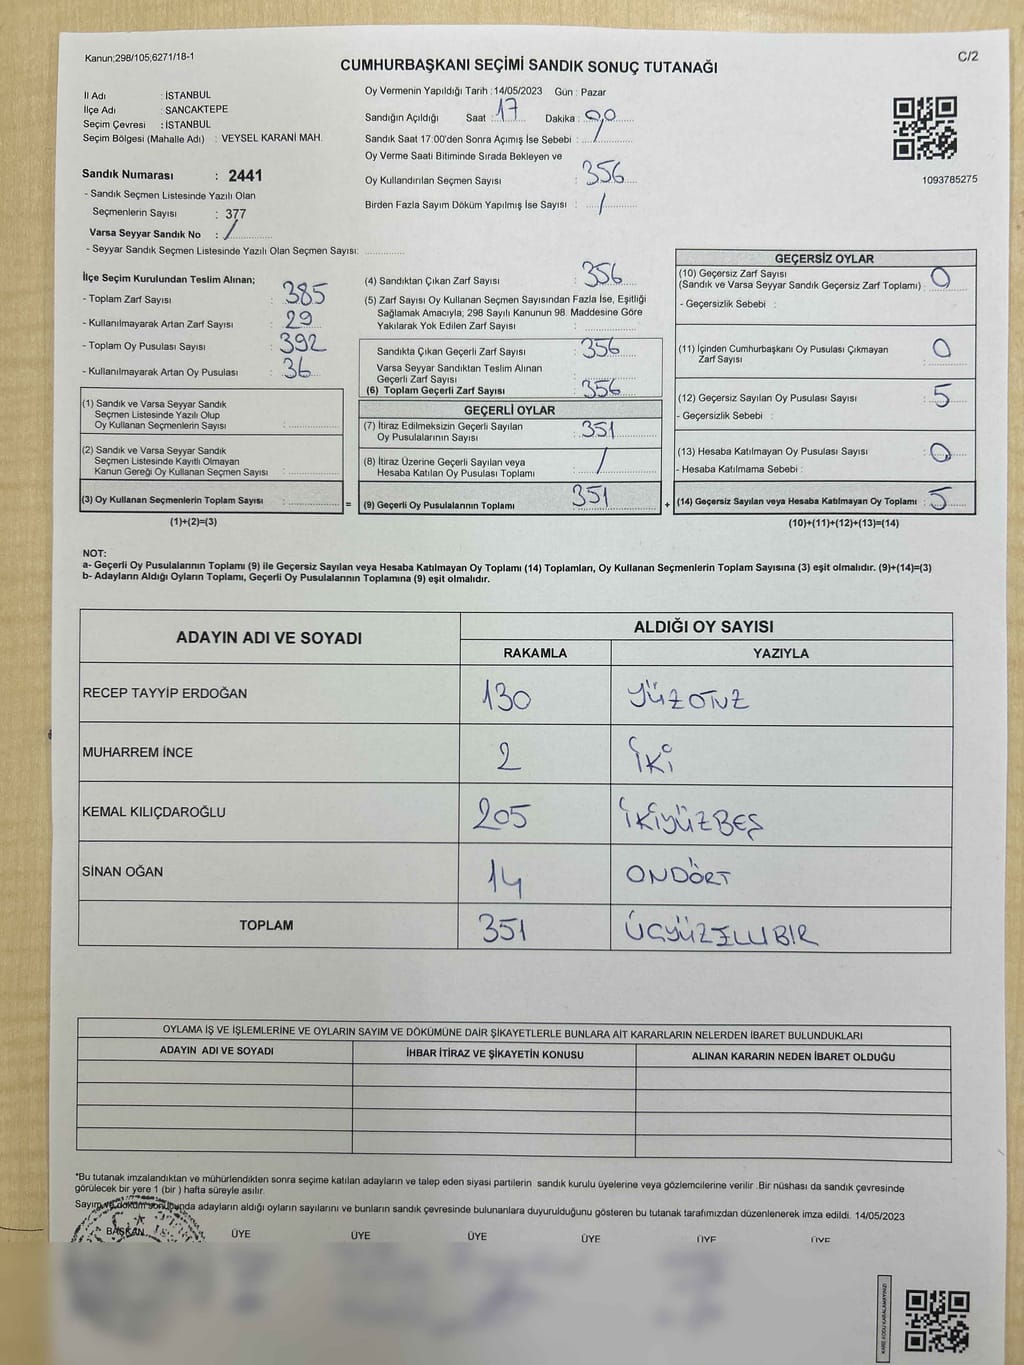 Kanun;298/105,6271/18-1
C/2
CUMHURBAŞKANI SEÇİMİ SANDIK SONUÇ TUTANAĞI
İl Adı : İSTANBUL
İlçe Adı : SANCAKTEPE
Seçim Çevresi : İSTANBUL
Seçim Bölgesi (Mahalle Adı) : VEYSEL KARANİ MAH.
Sandık Numarası : 2441
- Sandık Seçmen Listesinde Yazılı Olan
Seçmenlerin Sayısı : 377
Varsa Seyyar Sandık No : /
- Seyyar Sandık Seçmen Listesinde Yazılı Olan Seçmen Sayısı:
Oy Vermenin Yapıldığı Tarih :14/05/2023 Gün : Pazar
Sandığın Açıldığı Saat : 17 Dakika : 00
Sandık Saat 17:00'den Sonra Açımış İse Sebebi : /
Oy Verme Saati Bitiminde Sırada Bekleyen ve
Oy Kullandırılan Seçmen Sayısı : 356
Birden Fazla Sayım Döküm Yapılmış İse Sayısı : /
1093785275
İlçe Seçim Kurulundan Teslim Alınan;
- Toplam Zarf Sayısı : 385
- Kullanılmayarak Artan Zarf Sayısı : 29
- Toplam Oy Pusulası Sayısı : 392
- Kullanılmayarak Artan Oy Pusulası : 36
(1) Sandık ve Varsa Seyyar Sandık
Seçmen Listesinde Yazılı Olup
Oy Kullanan Seçmenlerin Sayısı :
(2) Sandık ve Varsa Seyyar Sandık
Seçmen Listesinde Kayıtlı Olmayan
Kanun Gereği Oy Kullanan Seçmen Sayısı :
(3) Oy Kullanan Seçmenlerin Toplam Sayısı : =
(1)+(2)=(3)
(4) Sandıktan Çıkan Zarf Sayısı : 356
(5) Zarf Sayısı Oy Kullanan Seçmen Sayısından Fazla İse, Eşitliği
Sağlamak Amacıyla; 298 Sayılı Kanunun 98. Maddesine Göre
Yakılarak Yok Edilen Zarf Sayısı :
Sandıkta Çıkan Geçerli Zarf Sayısı : 356
Varsa Seyyar Sandıktan Teslim Alınan
Geçerli Zarf Sayısı :
(6) Toplam Geçerli Zarf Sayısı : 356
GEÇERLİ OYLAR
(7) İtiraz Edilmeksizin Geçerli Sayılan
Oy Pusulalarının Sayısı : 351
(8) İtiraz Üzerine Geçerli Sayılan veya
Hesaba Katılan Oy Pusulası Toplamı : /
(9) Geçerli Oy Pusulalarının Toplamı : 351 +
GEÇERSİZ OYLAR
(10) Geçersiz Zarf Sayısı
(Sandık ve Varsa Seyyar Sandık Geçersiz Zarf Toplamı) : 0
- Geçersizlik Sebebi :
(11) İçinden Cumhurbaşkanı Oy Pusulası Çıkmayan
Zarf Sayısı : 0
(12) Geçersiz Sayılan Oy Pusulası Sayısı : 5
- Geçersizlik Sebebi :
(13) Hesaba Katılmayan Oy Pusulası Sayısı : 0
- Hesaba Katılmama Sebebi :
(14) Geçersiz Sayılan veya Hesaba Katılmayan Oy Toplamı : 5
(10)+(11)+(12)+(13)=(14)
NOT:
a- Geçerli Oy Pusulalarının Toplamı (9) ile Geçersiz Sayılan veya Hesaba Katılmayan Oy Toplamı (14) Toplamları, Oy Kullanan Seçmenlerin Toplam Sayısına (3) eşit olmalıdır. (9)+(14)=(3)
b- Adayların Aldığı Oyların Toplamı, Geçerli Oy Pusulalarının Toplamına (9) eşit olmalıdır.
ADAYIN ADI VE SOYADI ALDIĞI OY SAYISI
RAKAMLA YAZIYLA
RECEP TAYYİP ERDOĞAN 130 YÜZOTUZ
MUHARREM İNCE 2 İKİ
KEMAL KILIÇDAROĞLU 205 İKİYÜZBEŞ
SİNAN OĞAN 14 ONDÖRT
TOPLAM 351 ÜÇYÜZELLİBİR
OYLAMA İŞ VE İŞLEMLERİNE VE OYLARIN SAYIM VE DÖKÜMÜNE DAİR ŞİKAYETLERLE BUNLARA AİT KARARLARIN NELERDEN İBARET BULUNDUKLARI
ADAYIN ADI VE SOYADI İHBAR İTİRAZ VE ŞİKAYETİN KONUSU ALINAN KARARIN NEDEN İBARET OLDUĞU
*Bu tutanak imzalandıktan ve mühürlendikten sonra seçime katılan adayların ve talep eden siyasi partilerin sandık kurulu üyelerine veya gözlemcilerine verilir .Bir nüshası da sandık çevresinde
görülecek bir yere 1 (bir ) hafta süreyle asılır.
Sayım ve döküm sonucunda adayların aldığı oyların sayılarını ve bunların sandık çevresinde bulunanlara duyurulduğunu gösteren bu tutanak tarafımızdan düzenlenerek imza edildi. 14/05/2023
BAŞKAN ÜYE ÜYE ÜYE ÜYE ÜYE ÜYE
KARE KODU KARALAMAYINIZ!